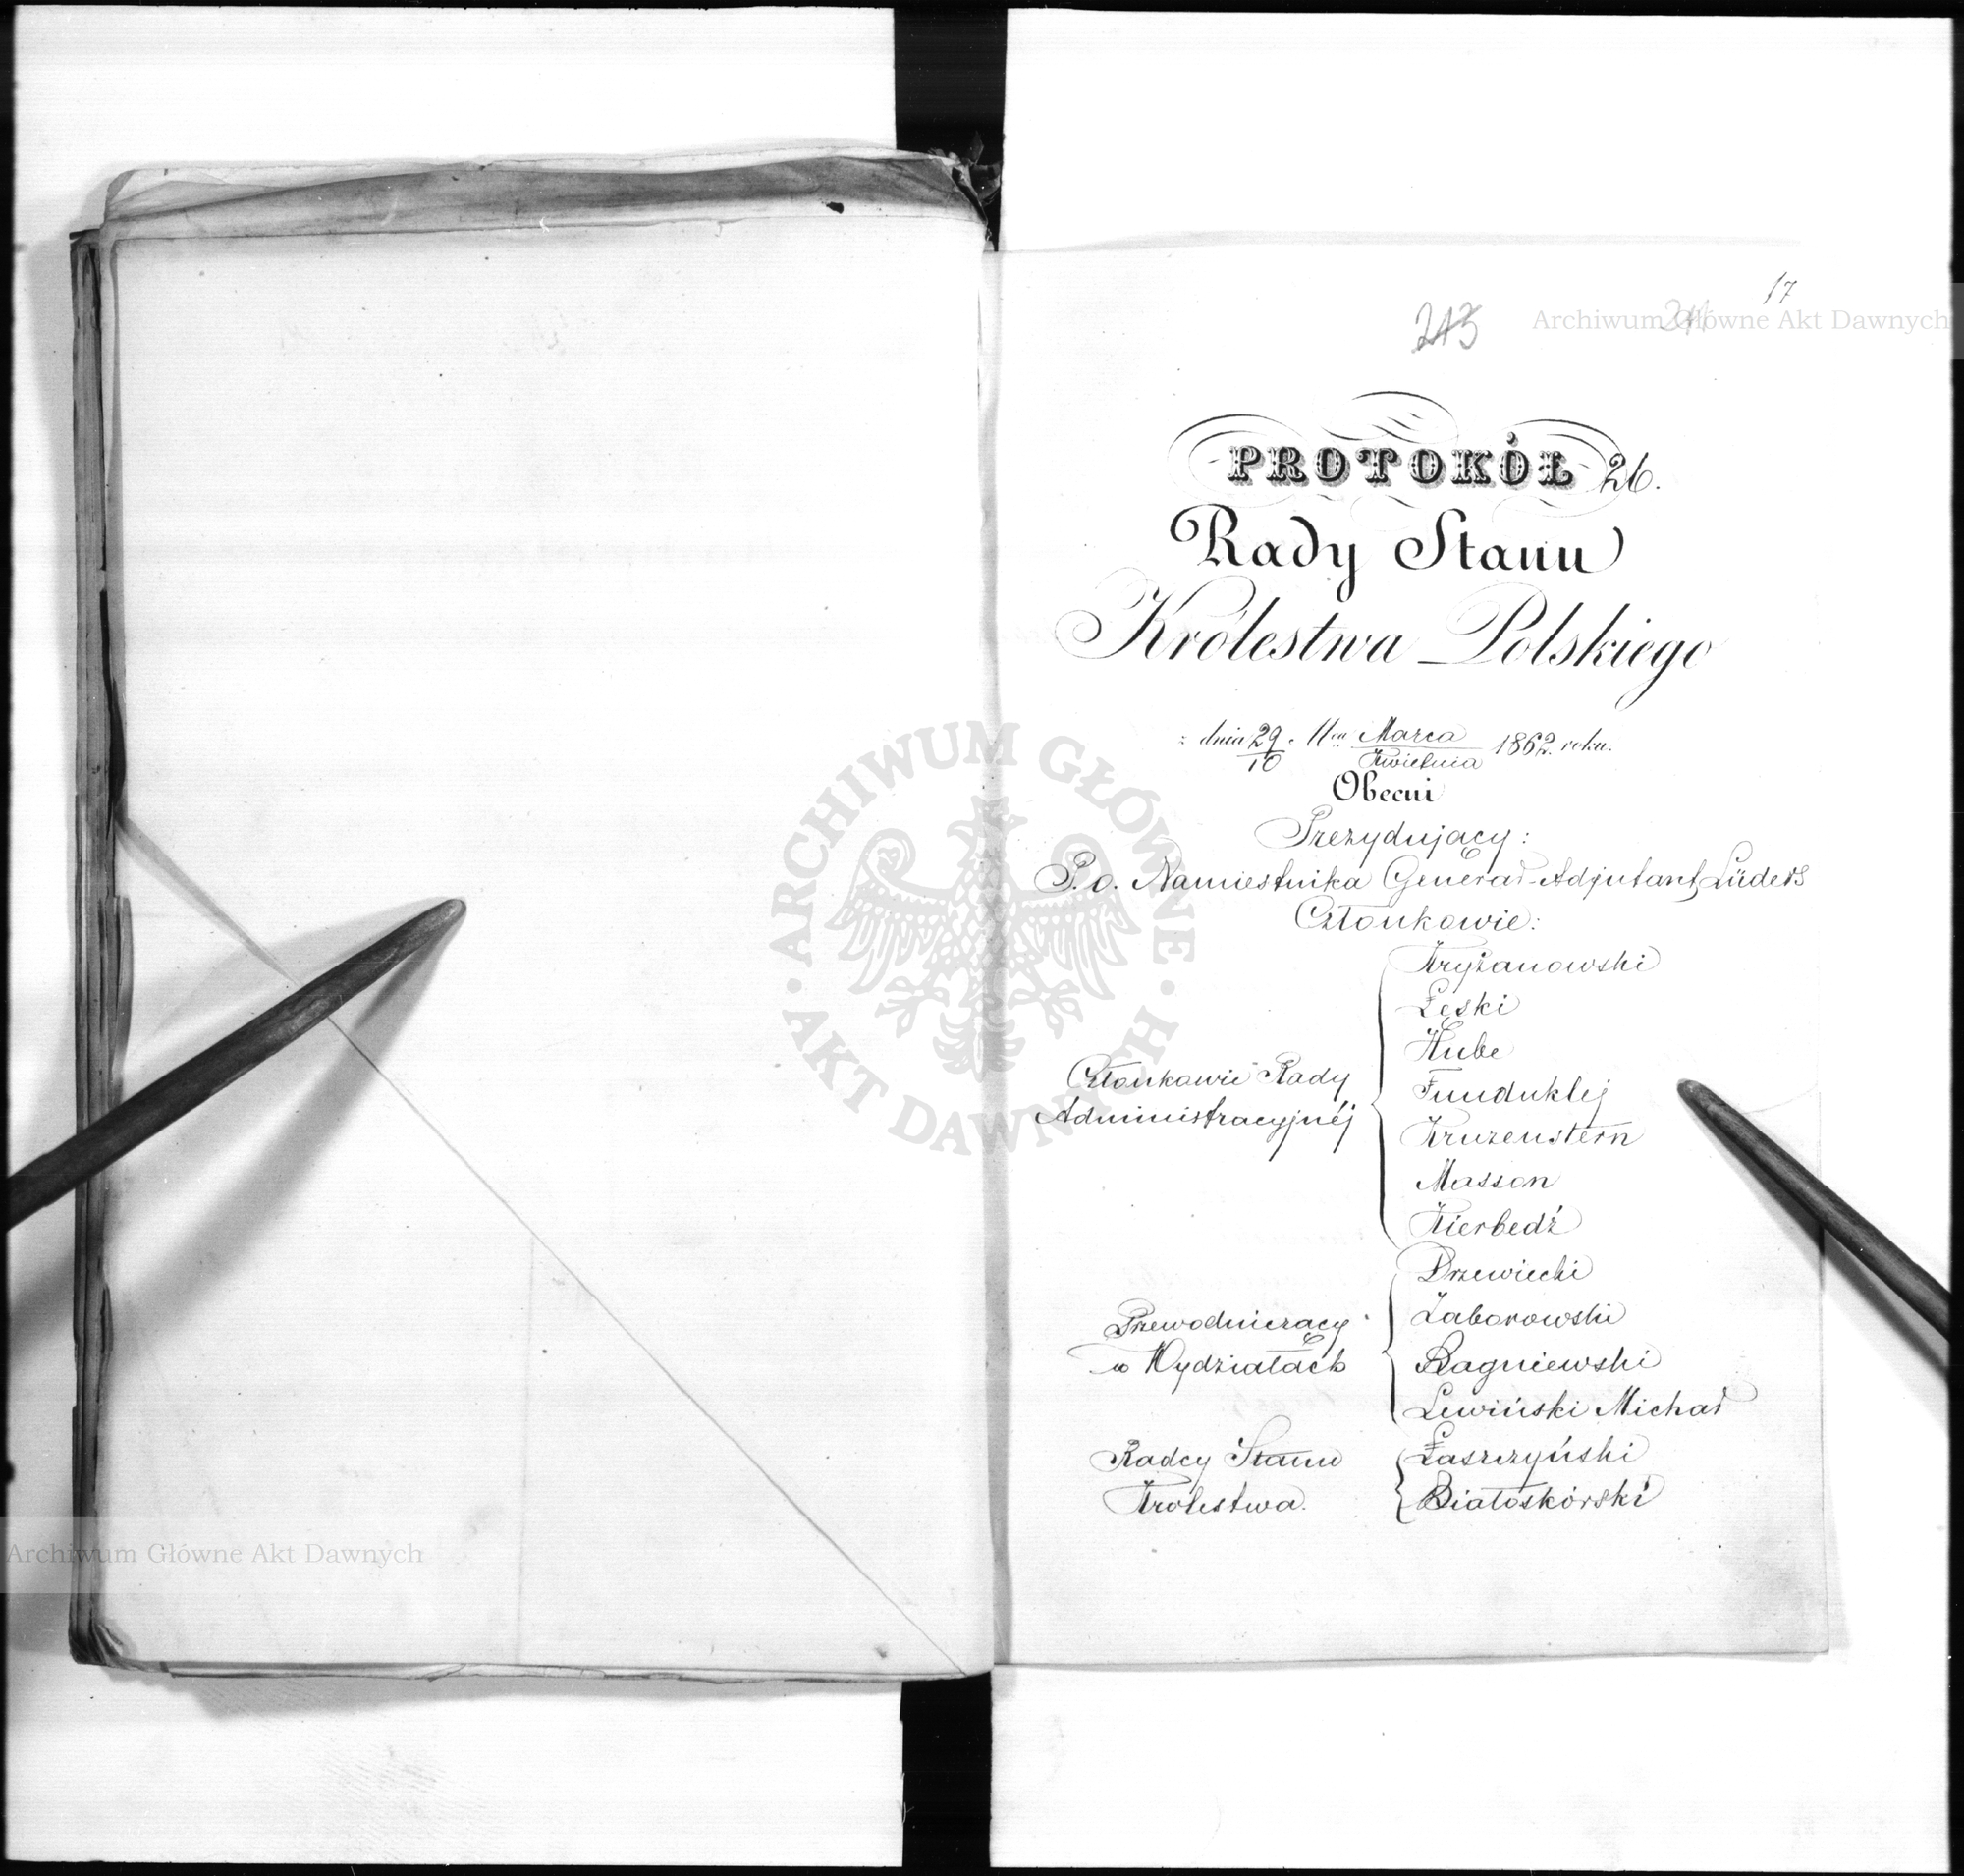 17
243
Archiwum Główne Akt Dawnych
PROTOKÓŁ 26.
Rady Stanu
Królestwa Polskiego
dnia 29/10 Marca/Kwietnia 1862. roku.
Obecni
Prezydujący:
P. o. Namiestnika Generał-Adjutant Lüders
Członkowie:
Członkowie Rady
Administracyjnéj
Kryżanowski
Łęski
Hube
Funduklej
Kruzenstern
Masson
Kierbedź
Przewodniczący
w Wydziałach
Drzewiecki
Zaborowski
Bagniewski
Lewiński Michał
Radcy Stanu
Królestwa.
Łaszczyński
Białoskórski
ARCHIWUM GŁÓWNE AKT DAWNYCH
Archiwum Główne Akt Dawnych